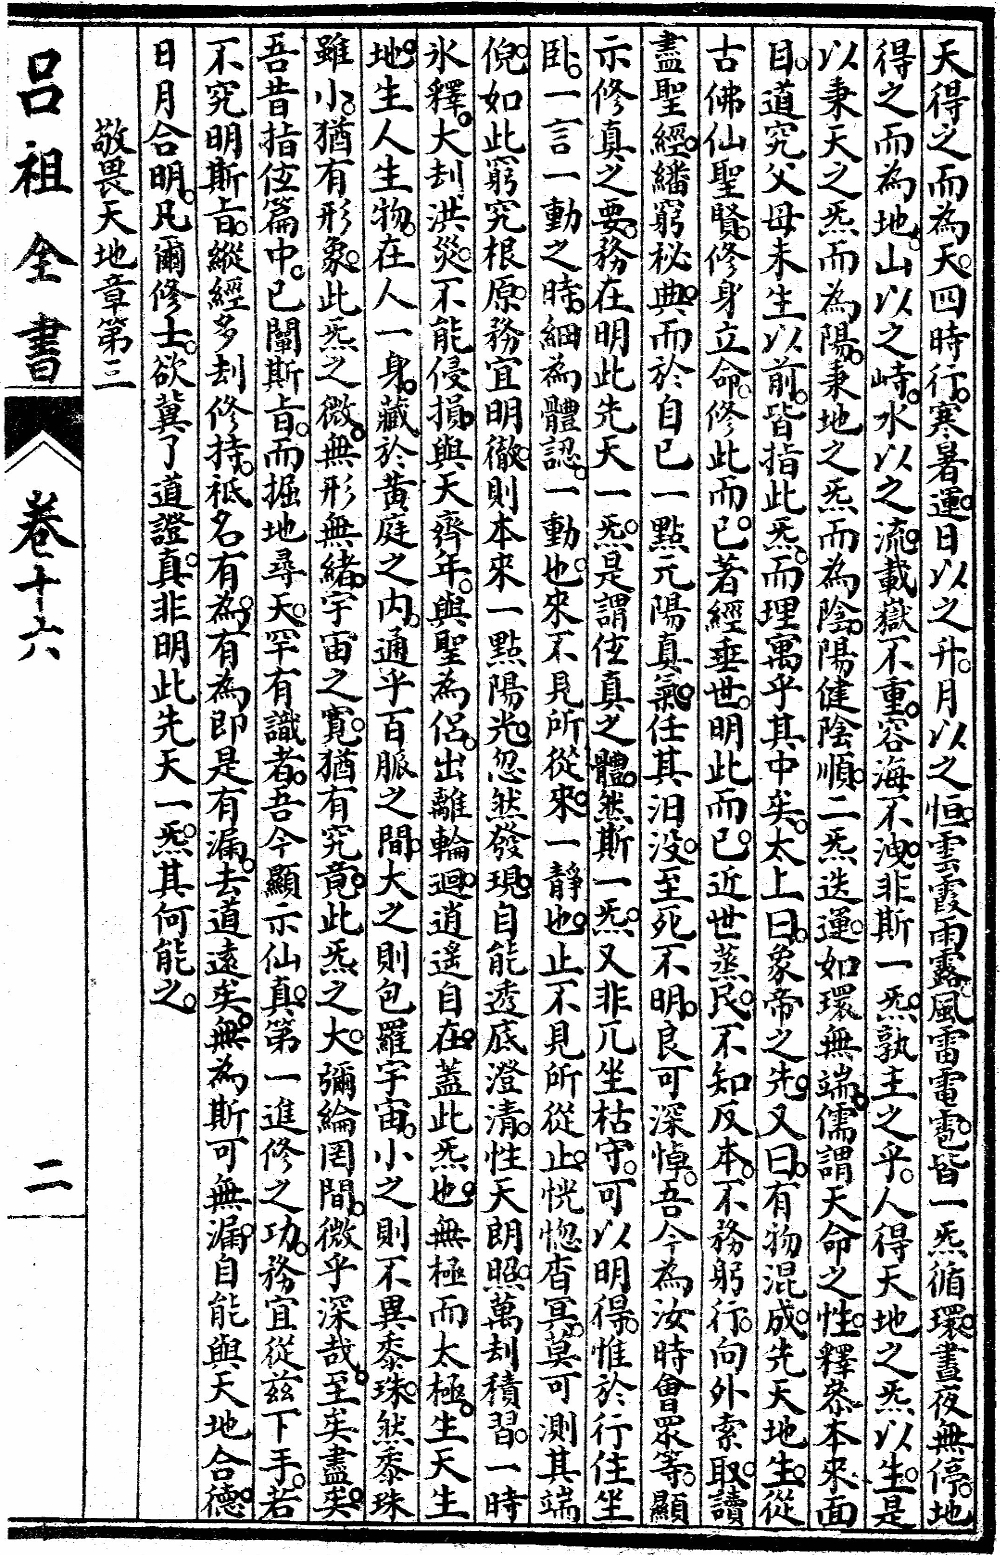 天得之而為天。四時行。寒暑運。日以之升。月以之恒。雲霞雨露。風雷電雹。皆一炁循環。晝夜無停。地
得之而為地。山以之峙。水以之流。載嶽不重。容海不洩。非斯一炁。孰主之乎。人得天地之炁以生。是
以秉天之炁而為陽。秉地之炁而為陰。陽健陰順。二炁迭運。如環無端。儒謂天命之性。釋叅本來面
目。道究父母未生以前。皆指此炁。而理寓乎其中矣。太上曰。象帝之先。又曰。有物混成。先天地生。從
古佛仙聖賢。修身立命。修此而已。著經垂世。明此而已。近世蒸民。不知反本。不務躬行。向外索取。讀
盡聖經。繙窮秘典。而於自己一點元陽真氣。任其汩没。至死不明。良可深悼。吾今為汝時會眾等。顯
示修真之要。務在明此先天一炁。是謂住真之體。然斯一炁。又非兀坐枯守。可以明得。惟於行住坐
卧。一言一動之時。細為體認。一動也。來不見所從來。一靜也。止不見所從止。恍惚杳冥。莫可測其端
倪。如此窮究根原。務宜明徹。則本來一點陽光。忽然發現。自能透底澄清。性天朗照。萬刦積習。一時
氷釋。大刦洪災。不能侵損。與天齊年。與聖為侶。出離輪迴。逍遙自在。蓋此炁也。無極而太極。生天生
地。生人生物。在人一身。藏於黃庭之內。通乎百脈之間。大之則包羅宇宙。小之則不異黍珠。然黍珠
雖小。猶有形象。此炁之微。無形無緒。宇宙之寬。猶有究竟。此炁之大。彌綸罔間。微乎深哉。至矣盡矣。
吾昔指住篇中。已闡斯旨。而掘地尋天。罕有識者。吾今顯示仙真。第一進修之功。務宜從茲下手。若
不究明斯旨。縱經多刦修持。祇名有為。有為即是有漏。去道遠矣。無為斯可無漏。自能與天地合德。
日月合明。凡爾修士。欲冀了道證真。非明此先天一炁。其何能之。
敬畏天地章第三
呂祖全書
卷十六
二